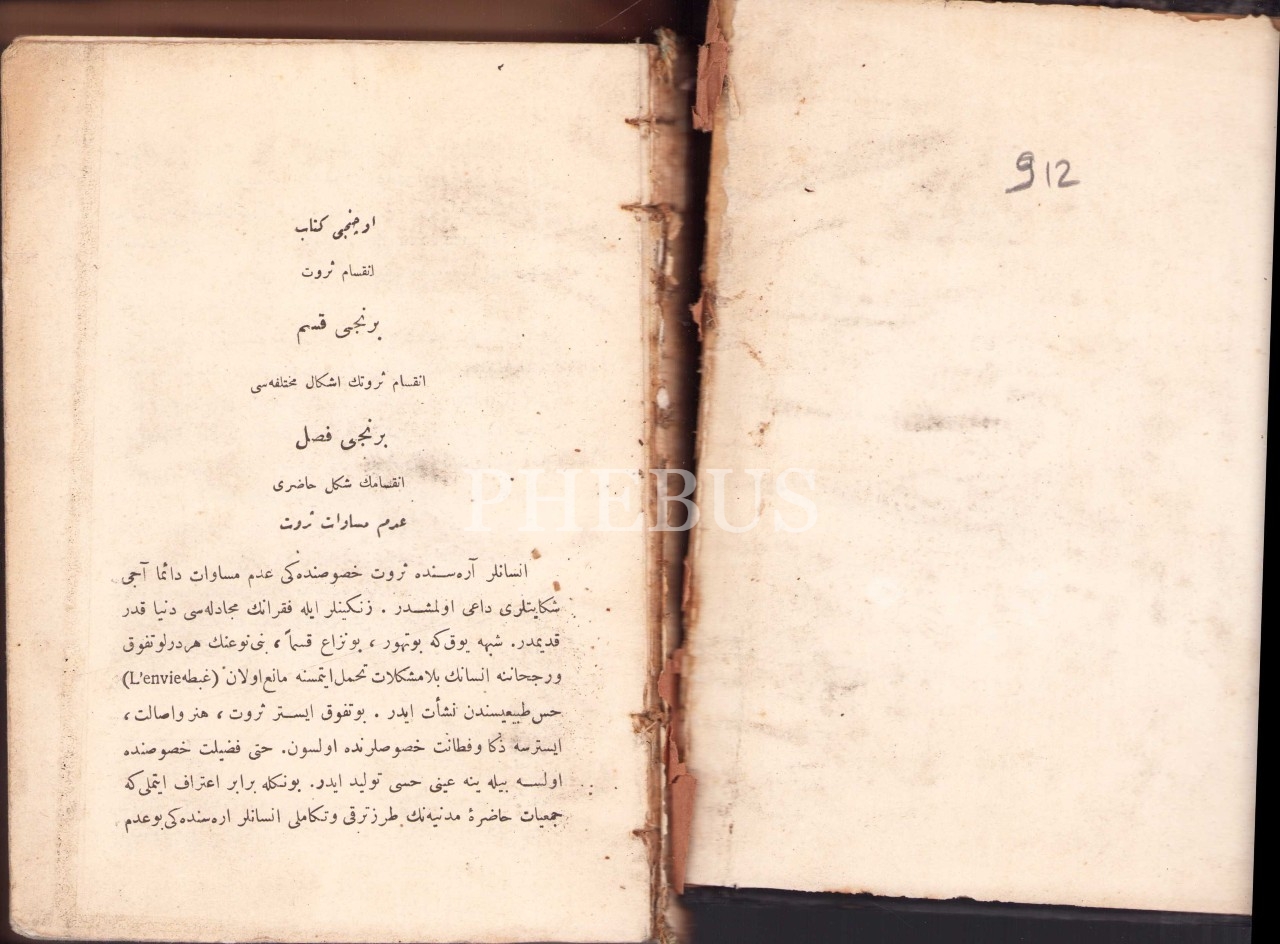 اوچنجی كتاب
انقسام ثروت
برنجی قسم
انقسام ثروتك اشكال مختلفه‌سی
برنجی فصل
انقسامك شكل حاضری
عدم مساوات ثروت
انسانلر آره‌سنده ثروت خصوصنده‌كی عدم مساوات دائما آجی
شكایتلری داعی اولمشدر . زنكینلر ایله فقرانك مجادله‌سی دنیا قدر
قدیمدر. شبهه یوق‌كه بوتهور ، بونزاع قسماً ، بنی‌نوعنك هردرلوتفوق
ورجحاننه انسانك بلامشكلات تحمل‌ایتمسنه مانع‌اولان (غبطهL'envie)
حس‌طبیعیسندن نشأت ایدر . بوتفوق ایستر ثروت ، هنر واصالت ،
ایسترسه ذكا وفطانت خصوصلرنده اولسون. حتی فضیلت خصوصنده
اولسه بیله ینه عینی حسی تولید ایدر. بونكله برابر اعتراف ایتملی‌كه
جمعیات حاضرۀ مدنیه‌نك طرزترقی وتكاملی انسانلر اره‌سنده‌كی‌بوعدم
912
PHEBUS